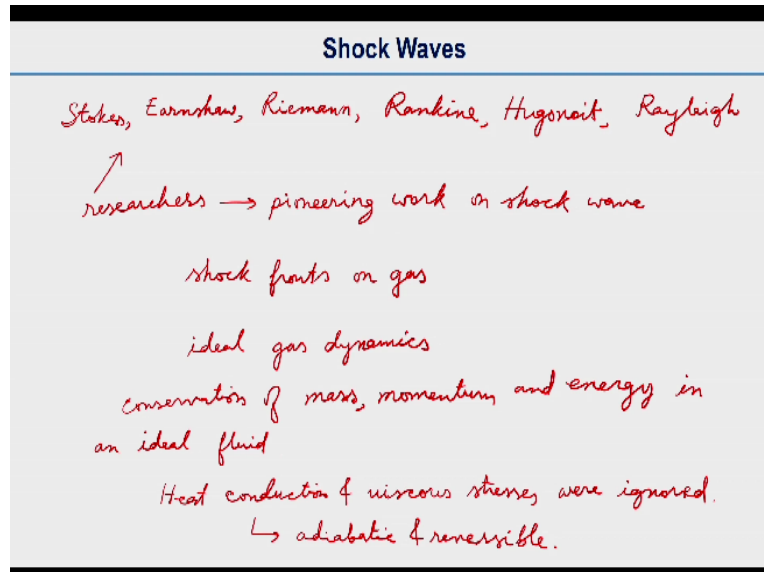 Shock Waves
Stokes, Earnshaw, Riemann, Rankine, Hugonoit, Rayleigh
researchers → pioneering work on shock wave
shock fronts on gas
ideal gas dynamics
conservation of mass, momentum, and energy in
an ideal fluid
Heat conduction & viscous stresses were ignored.
↳ adiabatic & reversible.